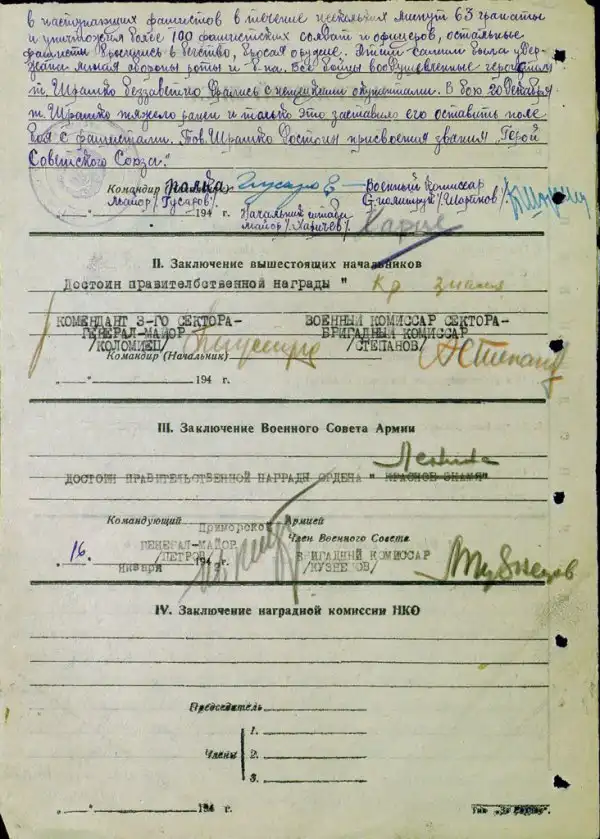 в наступающих фашистов в течение нескольких минут 63 гранаты
и уничтожил более 100 фашистских солдат и офицеров, остальные
фашисты бросились в бегство, бросая орудие. Этим самым была удер-
жана линия обороны роты и б-на. Все бойцы воодушевленные героизмом
т. Шрамко беззаветно дрались с немецкими оккупантами. В бою 20 декабря
т. Шрамко тяжело ранен и только это заставило его оставить поле
боя с фашистами. Тов. Шрамко достоин присвоения звания "Герой
Советского Союза."
Командир полка Гусаров Военный комиссар
майор /Гусаров/. Ст. политрук /Шортков/.
"___"___194 г. Начальник штаба
майор /Харичев/. Харич
II. Заключение вышестоящих начальников
Достоин правителбственной награды " Кр. знамя
КОМЕНДАНТ 3-ГО СЕКТОРА- ВОЕННЫЙ КОМИССАР СЕКТОРА-
ГЕНЕРАЛ-МАЙОР БРИГАДНЫЙ КОМИССАР
/КОЛОМИЕЦ/ /СТЕПАНОВ/
Командир (Начальник)
"___"___194 г.
III. Заключение Военного Совета Армии
Ленина
ДОСТОИН ПРАВИТЕЛЬСТВЕННОЙ НАГРАДЫ ОРДЕНА " КРАСНОЕ ЗНАМЯ"
Командующий Приморской Армией
ГЕНЕРАЛ-МАЙОР Член Военного Совета
"16." /ПЕТРОВ/ 194 2г. БРИГАДНЫЙ КОМИССАР
января /КУЗНЕЦОВ/
IV. Заключение наградной комиссии НКО
Председатель
1.
Члены 2.
3.
"___"___194 г.